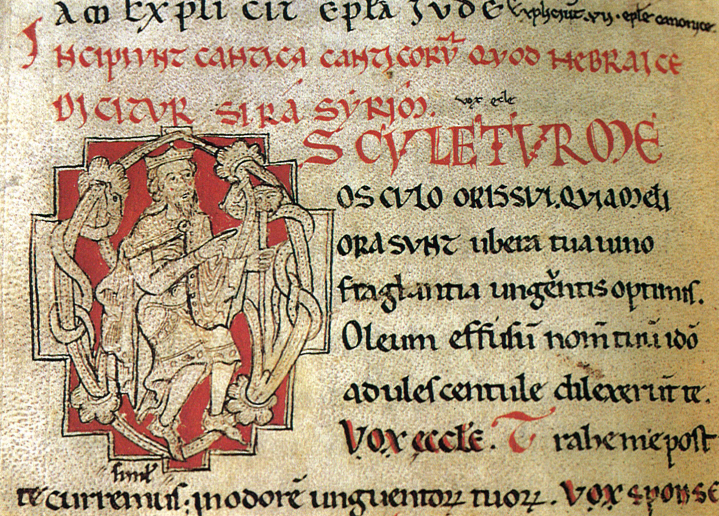 Am Explicit epl̄a Jude Expliciūt. vii. epl̄e canonice.
Incipiunt cantica canticorū quod hebraice
dicitur sirasyrim. vox eccl̄e
Osculetur me
osculo oris sui. quia meli
ora sunt ubera tua uino
fraglantia ungēntis optimis.
Oleum effusū nom̄ tuū idō
adulescentule dilexerunt te.
vox eccl̄e. Trahe me post
te curremus: in odorē unguentoꝝ tuoꝝ. vox sponse